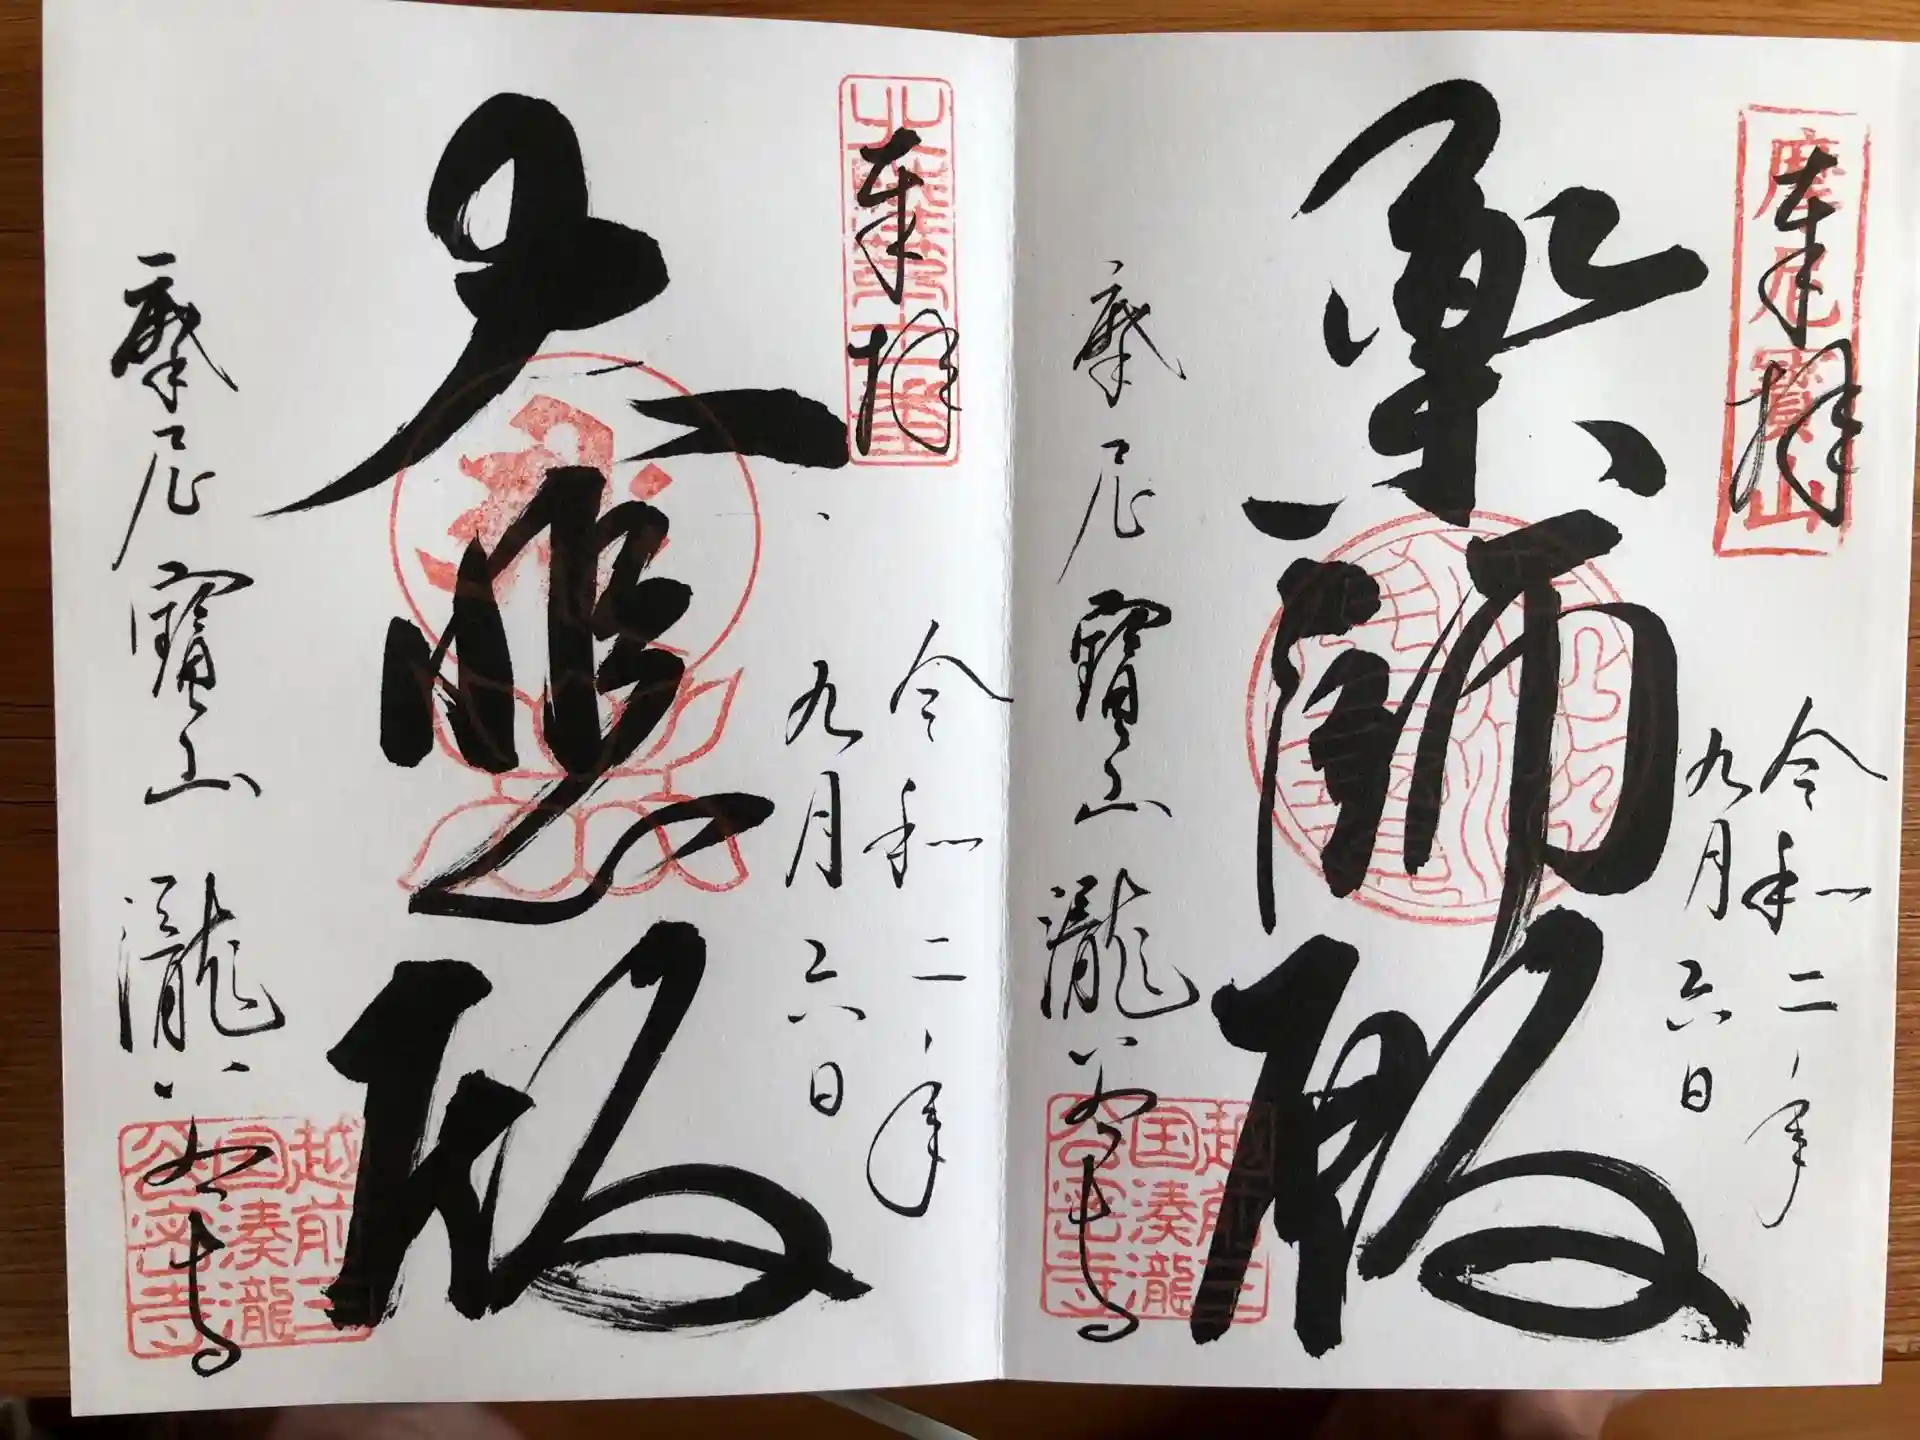 摩尼寶山
奉拝
令和二年
九月六日
薬師殿
摩尼寶山 瀧谷寺
越前三
国湊瀧
谷密寺
奉拝
令和二年
九月六日
大悲殿
摩尼寶山 瀧谷寺
越前三
国湊瀧
谷密寺